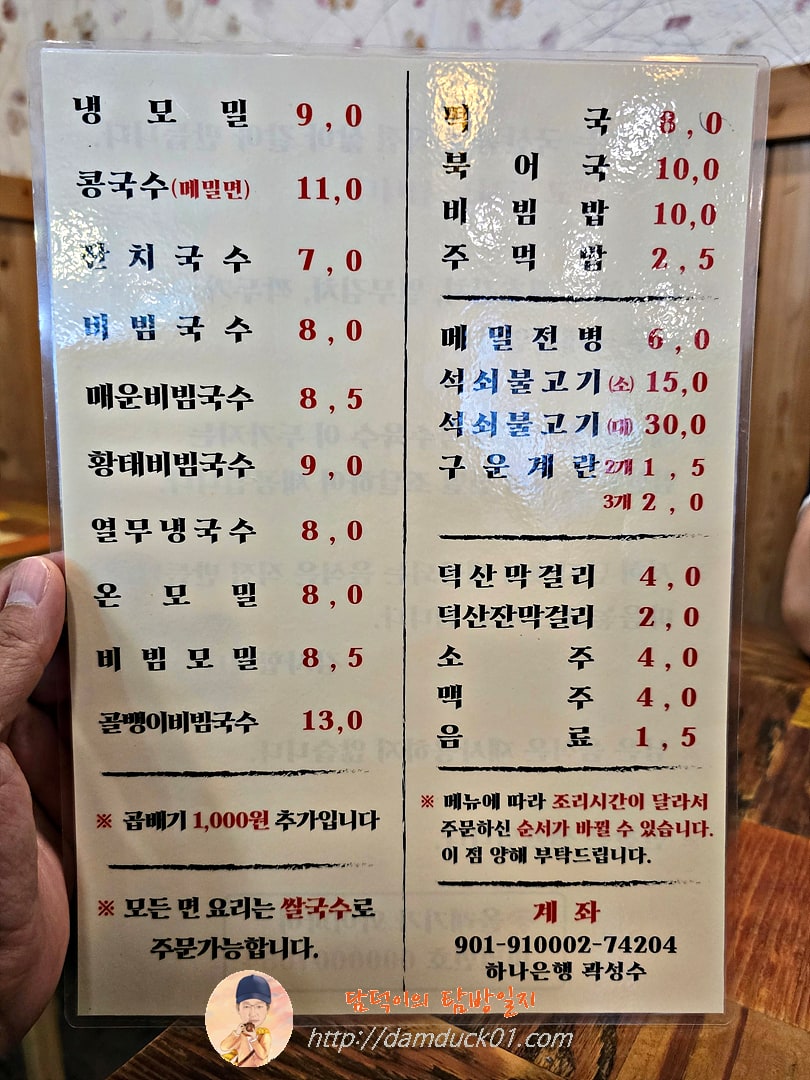 냉모밀 9,0
콩국수(메밀면) 11,0
잔치국수 7,0
비빔국수 8,0
매운비빔국수 8,5
황태비빔국수 9,0
열무냉국수 8,0
온모밀 8,0
비빔모밀 8,5
골뱅이비빔국수 13,0
※ 곱배기 1,000원 추가입니다
※ 모든 면 요리는 쌀국수로
주문가능합니다.
떡국 8,0
북어국 10,0
비빔밥 10,0
주먹밥 2,5
메밀전병 6,0
석쇠불고기(소) 15,0
석쇠불고기(대) 30,0
구운계란 2개 1,5
3개 2,0
덕산막걸리 4,0
덕산잔막걸리 2,0
소주 4,0
맥주 4,0
음료 1,5
※ 메뉴에 따라 조리시간이 달라서
주문하신 순서가 바뀔 수 있습니다.
이 점 양해 부탁드립니다.
계좌
901-910002-74204
하나은행 곽성수
담덕이의 탐방일지
http://damduck01.com